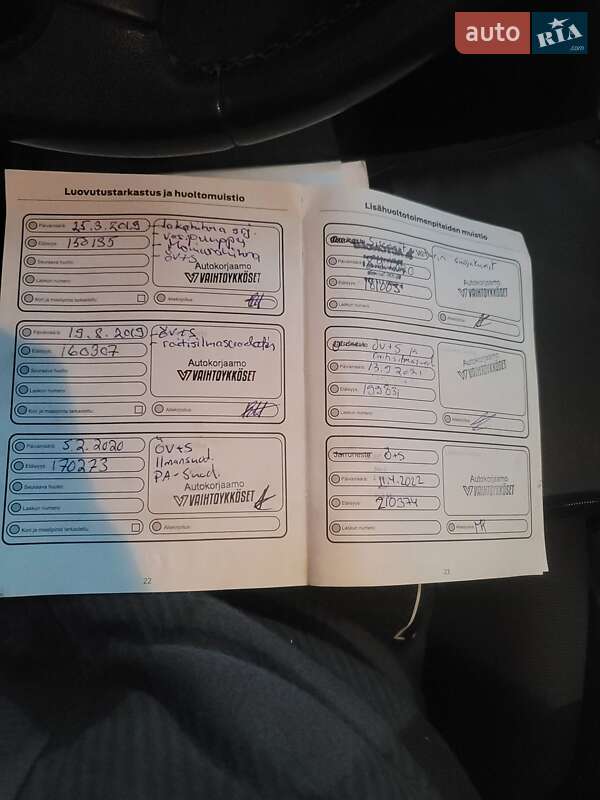 auto RIA.com
Luovutustarkastus ja huoltomuistio
Päivämäärä: 25.3.2019
Etäisyys: 150195
Seuraava huolto:
Laskun numero:
Kori ja maalipinta tarkastettu:
jakohihna srj.
vesipumppu
ÖV+S
Autokorjaamo
VAIHTOYKKÖSET
Allekirjoitus:
Päivämäärä: 19.8.2019
Etäisyys: 160307
Seuraava huolto:
Laskun numero:
Kori ja maalipinta tarkastettu:
ÖV+S
raitisilmasuodatin
Autokorjaamo
VAIHTOYKKÖSET
Allekirjoitus:
Päivämäärä: 5.2.2020
Etäisyys: 170273
Seuraava huolto:
Laskun numero:
Kori ja maalipinta tarkastettu:
ÖV+S
Ilmansuod.
PA-Suod.
Autokorjaamo
VAIHTOYKKÖSET
Allekirjoitus:
22
Lisähuoltotoimenpiteiden muistio
Päivämäärä:
Etäisyys:
Laskun numero:
Autokorjaamo
VAIHTOYKKÖSET
Allekirjoitus:
ÖV+S ja
Päivämäärä: 13.9.2021
Etäisyys:
Laskun numero:
Autokorjaamo
VAIHTOYKKÖSET
Allekirjoitus:
Jarruneste Ö+S
Päivämäärä: 11.4.2022
Etäisyys: 210374
Laskun numero:
Autokorjaamo
VAIHTOYKKÖSET
Allekirjoitus:
23